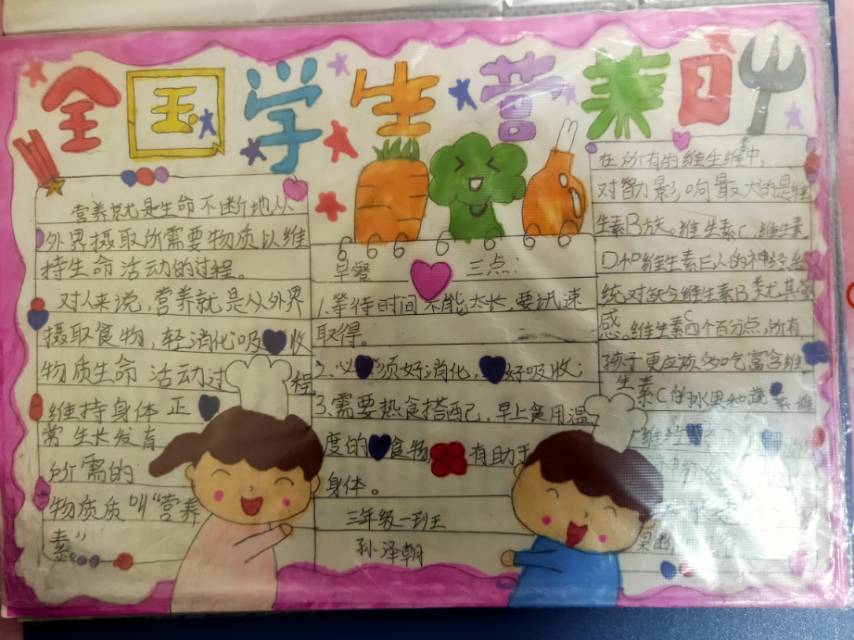 全国学生营养日
营养就是生命不断地从
外界摄取所需要物质以维
持生命活动的过程。
对人来说,营养就是从外界
摄取食物,轻消化吸收
物质生命活动过程
维持身体正
常生长发育
所需的
物质质叫“营养
素”
早餐 三点:
1.等待时间不能太长,要迅速
取得。
2.必须好消化,好吸收;
3.需要热食搭配,早上食用温
度的食物有助于
身体。
三年级一班
孙泽朝
在所有的维生维中,
对智力影响最大的是维
生素B族。维生素C、维生素
D和维生素E人的神经
统对缺今维生素B
感。维生素C四个百分点,所有
孩子更应该多吃富含维
生素C的水果和蔬